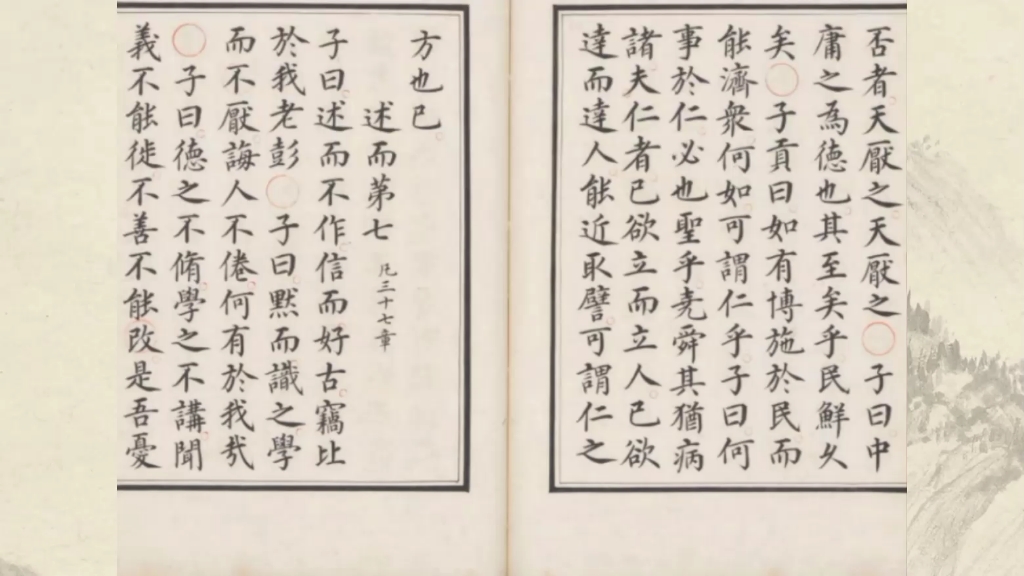 否者天厭之天厭之〇子曰中
庸之為德也其至矣乎民鮮久
矣〇子貢曰如有博施於民而
能濟衆何如可謂仁乎子曰何
事於仁必也聖乎堯舜其猶病
諸夫仁者己欲立而立人己欲
達而達人能近取譬可謂仁之
方也已
述而第七 凡三十七章
子曰述而不作信而好古竊比
於我老彭〇子曰默而識之學
而不厭誨人不倦何有於我哉
〇子曰德之不脩學之不講聞
義不能徙不善不能改是吾憂